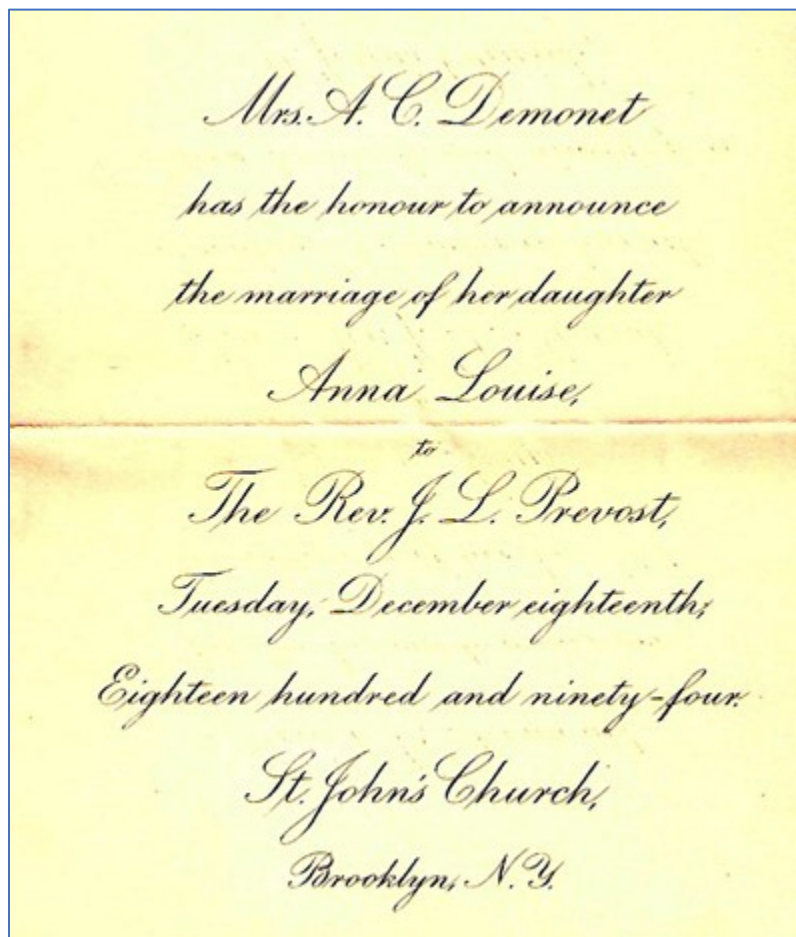 Mrs. A. C. Demonet
has the honour to announce
the marriage of her daughter
Anna Louise,
to
The Rev. J. L. Prevost,
Tuesday, December eighteenth,
Eighteen hundred and ninety-four.
St. John's Church,
Brooklyn, N.Y.